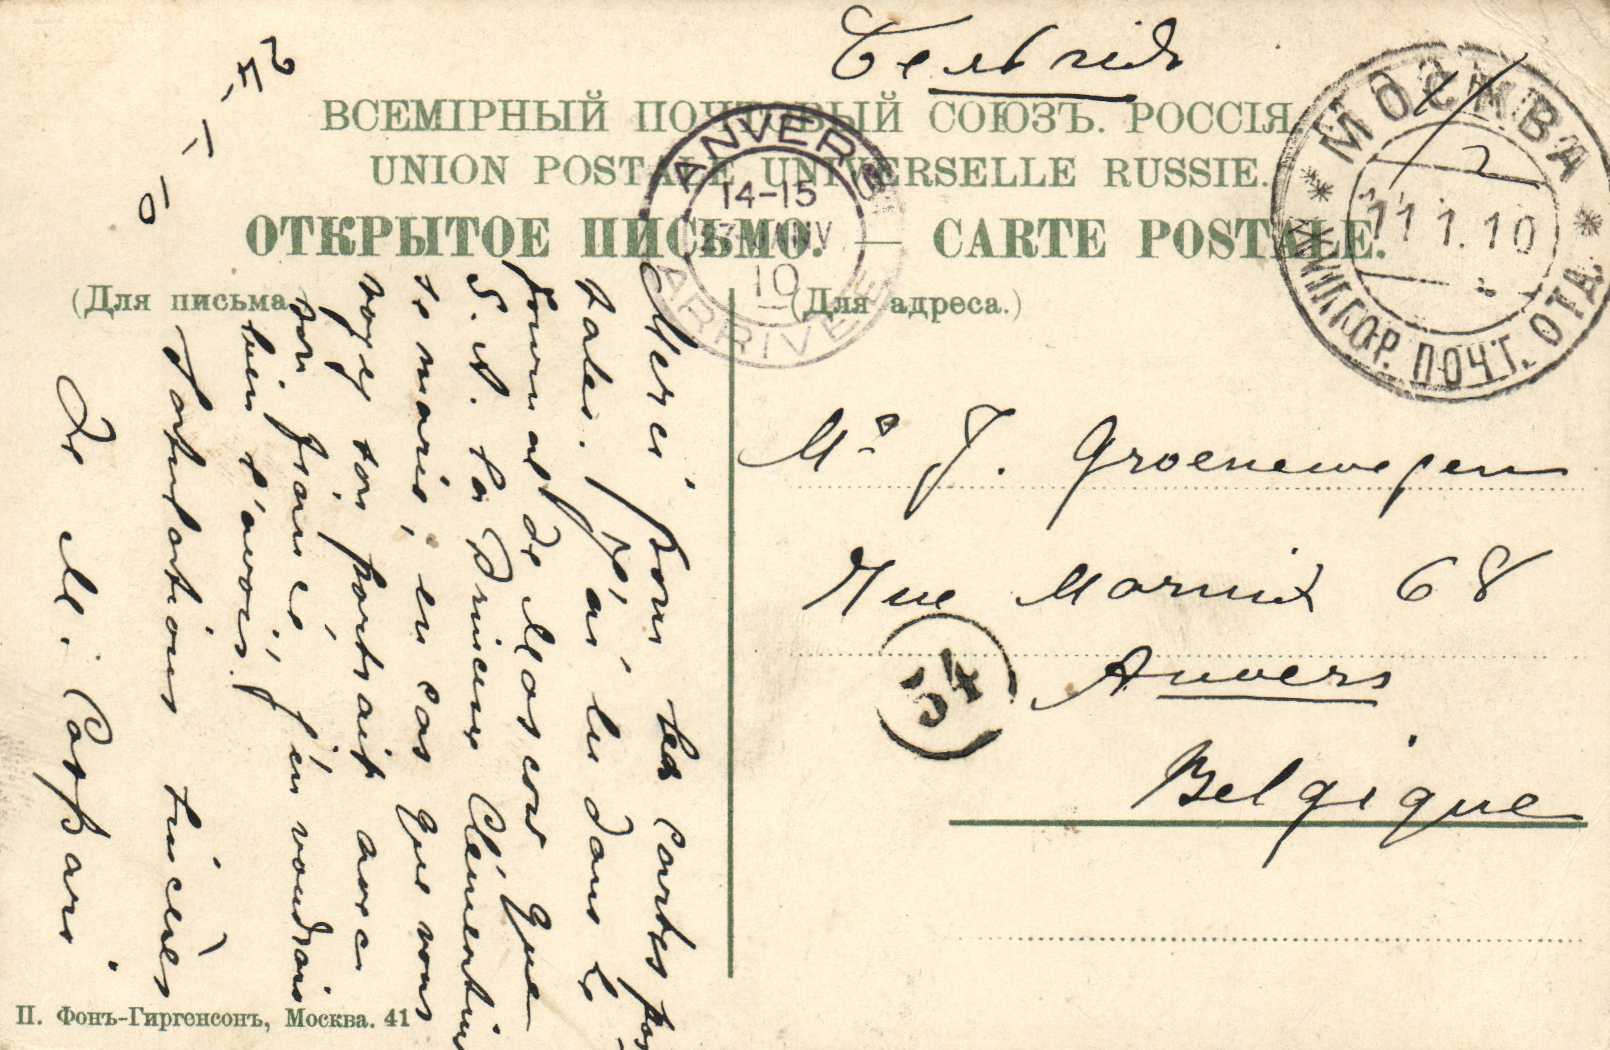 Бельгія
ВСЕМІРНЫЙ ПОЧТОВЫЙ СОЮЗЪ. РОССІЯ.
UNION POSTALE UNIVERSELLE RUSSIE.
ОТКРЫТОЕ ПИСЬМО. — CARTE POSTALE.
(Для письма.)
(Для адреса.)
ANVERS
14-15
JANV
10
ARRIVEE
МОСКВА
11.1.10
ПОЧТ. ОТД.
Merci pour tes cartes pos-
tales. J'ai lu dans le
journal de Moscou que
S. A. la Princesse Clémentine
se marie, en cas que vous
voyez son portrait avec
son fiancé, j'en voudrais
bien l'avoir.
Salutations sincères
De M. Caspari.
Mr J. Groenewegen
Rue Marnix 68
54
Anvers
Belgique
П. Фонъ-Гиргенсонъ, Москва. 41